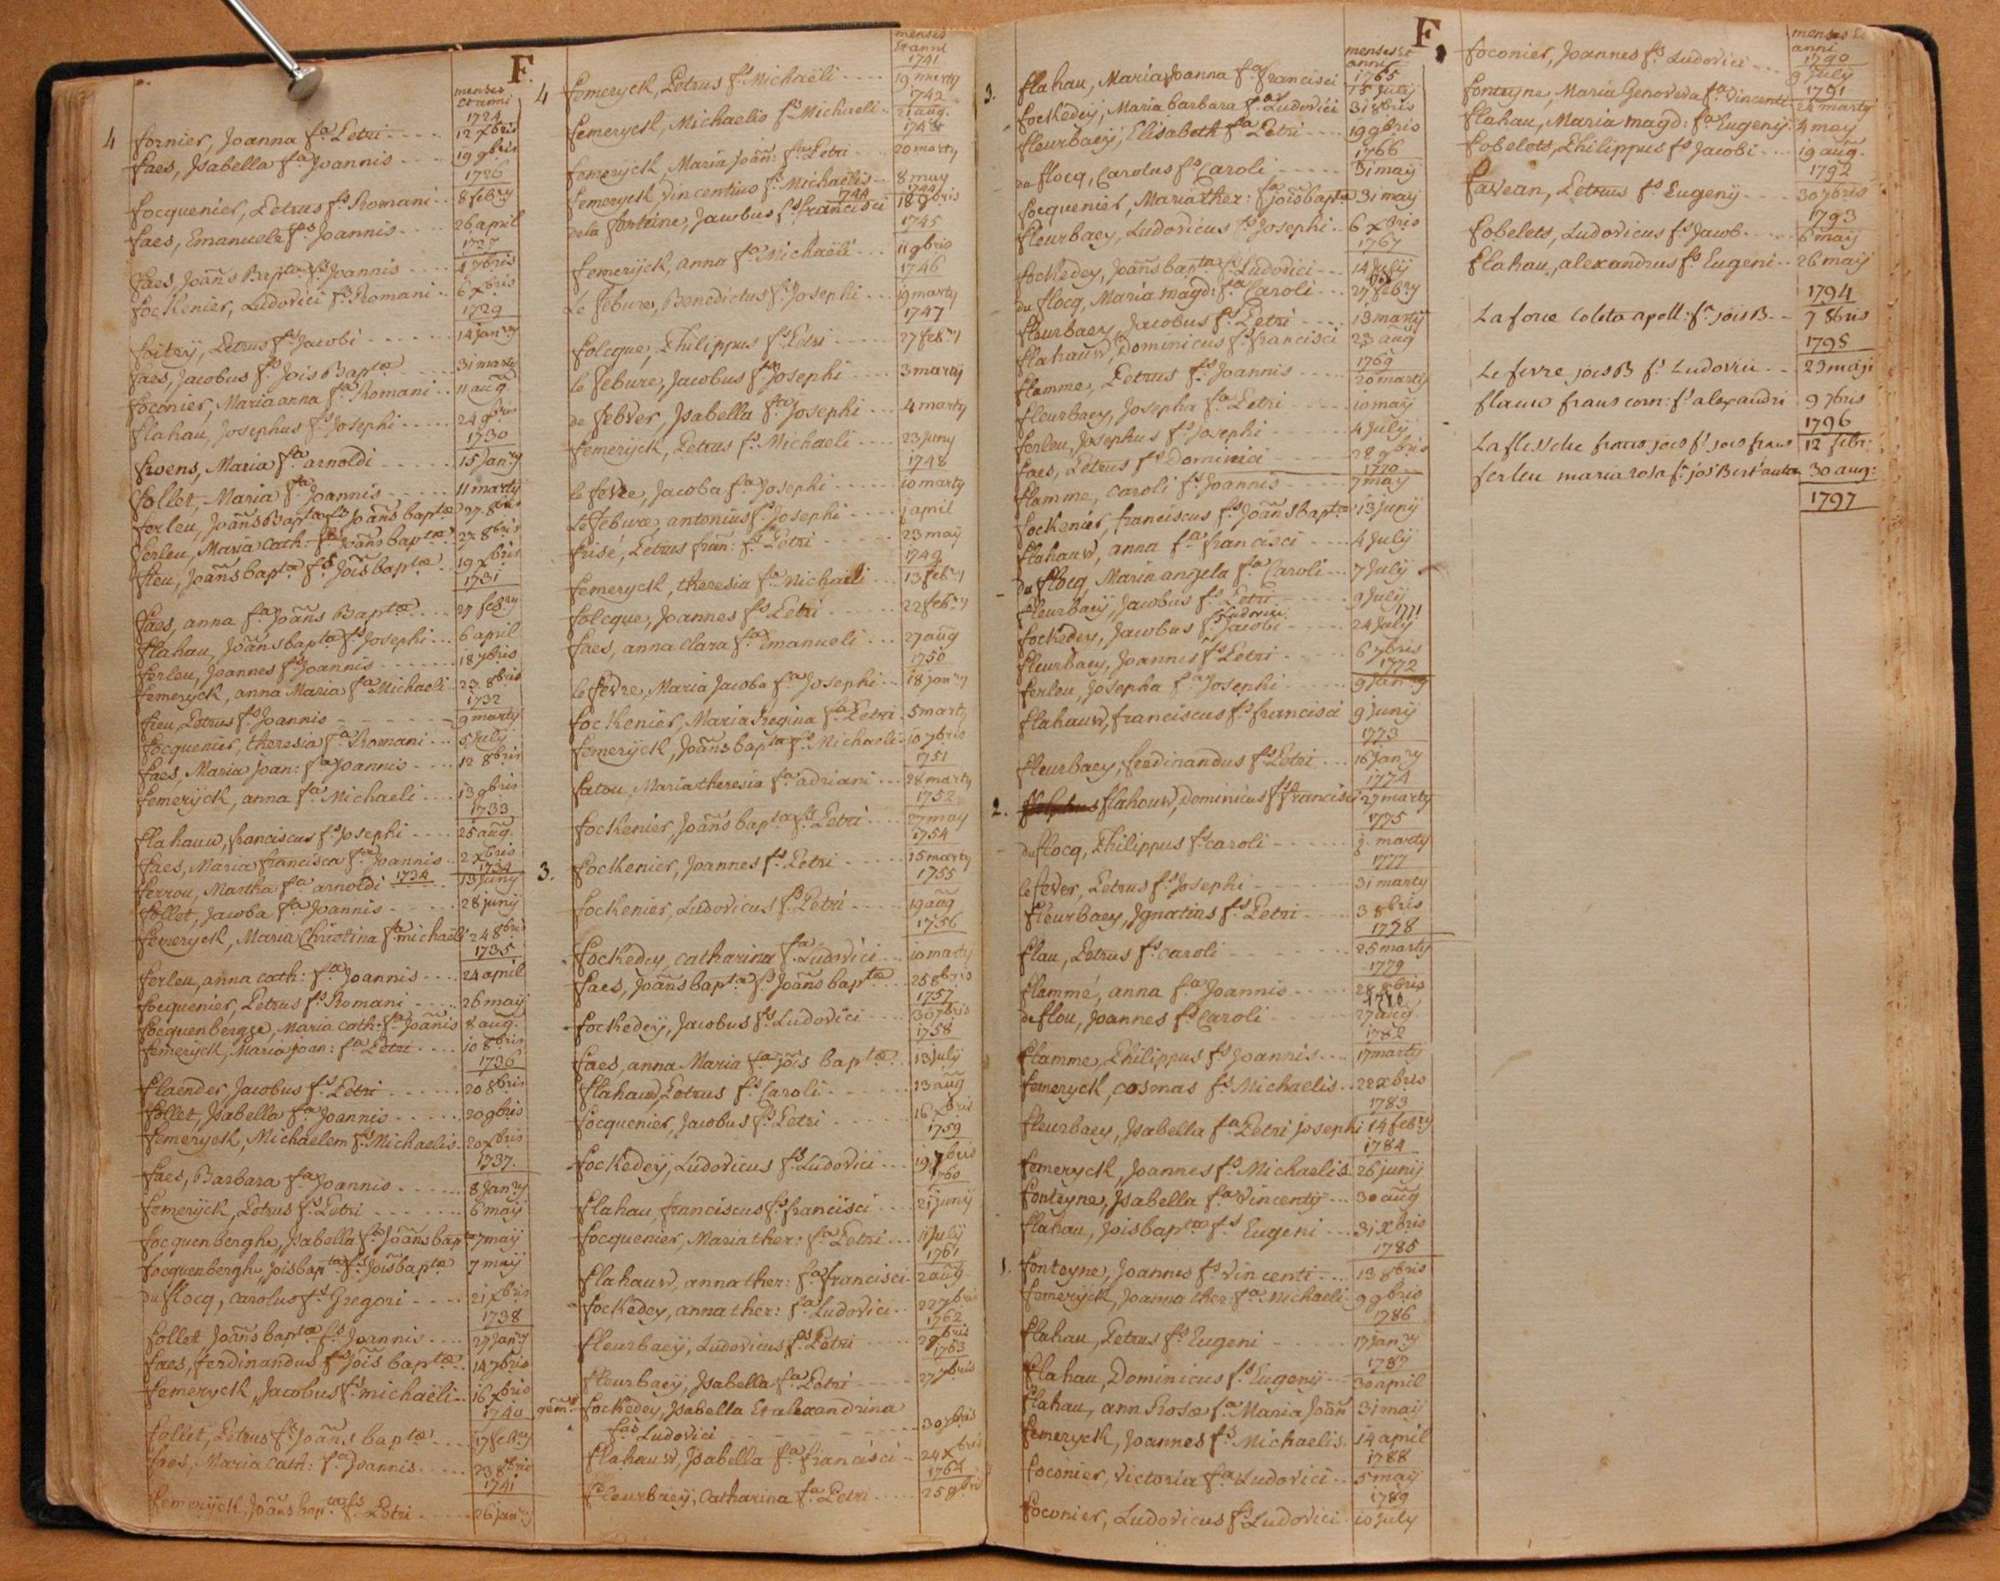 F.
menses
et anni
1724
4 fornier, Joanna fa Petri 12 xbris
faes, Isabella fa Joannis 19 gbris
1726
focquenier, Petrus fs Romani 8 febry
faes, Emanuele fs Joannis 26 april
1727
faes Joañs Bapta fs Joannis 4 7bris
fockenier, Ludovici fs Romani 6 xbris
1729
foiteÿ, Petrus fs Jacobi 14 janry
faes, Jacobus fs Jois Baptæ 31 marty
foconier, Maria anna fa Romani 11 aug
flahau, Josephus fs Josephi 24 gbris
1730
froens, Maria fa arnoldi 15 janry
follet, Maria fa Joannis 11 marty
ferleu, Joañs Bapta fs Joañs baptæ 27 8bris
ferleu, Maria Cath: fa Joañs baptæ 27 8bris
fleu, Joañs bapta fs Joïs baptæ 19 xbris
1731
faes, anna fa Joañs Baptæ 27 febry
flahau, Joañs bapta fs Josephi 6 april
ferleu, Joannes fs Joannis 18 7bris
femeryck, anna Maria fa Michaeli 23 8bris
1732
fleu, Petrus fs Joannis 9 marty
focquenier, theresia fa Romani 5 July
faes, Maria Joan: fa Joannis 12 8bris
femeryck, anna fa Michaeli 13 gbris
1733
flahauw, franciscus fs Josephi 25 aug.
faes, Maria francisca fa Joannis 2 xbris
1734
ferrou, Martha fa arnoldi 1734 13 Juny
follet, Jacoba fa Joannis 28 juny
femeryck, Maria Christina fa michaeli 24 8bris
1735
ferleu, anna cath: fa Joannis 24 april
focquenier, Petrus fs Romani 26 maÿ
focquenberghe, Maria Cath: fa Joañis 8 aug.
femeryck, Maria joan: fa Petri 10 8bris
1736
flaender Jacobus fs Petri 20 8bris
follet, Isabella fa Joannis 20 gbris
femeryck, Michaelem fs Michaelis 20 xbris
1737.
faes, Barbara fa Joannis 8 Janry
femerÿck, Petrus fs Petri 6 maÿ
focquenberghe, Isabella fa Joañs bapta 7 maÿ
focquenberghe Joisbapta fs Joisbaptæ 7 maÿ
du flocq, carolus fs Gregori 21 xbris
1738
follet Joañs baptæ fs Joannis 27 Janry
faes, ferdinandus fs Joïs baptæ 14 7bris
femeryck, Jacobus fs michaëli 16 xbris
1740
follet, Petrus fs Joañs baptæ 17 febry
faes, Maria Cath: fa Joannis 23 8bris
1741
femerÿck, Joañs bapta fs Petri 26 janry
menses
et anni
1741
4 femeryck, Petrus fs Michaëli 19 marty
1742
femeryck, Michaelis fs Michaeli 21 aug.
femeryck, Maria Joañ: fa Petri 20 marty
femeryck Vincentius fs Michaëlis 8 may
1744
de la fontaine, Jacobus fs francisci 1744
1745
femerÿck, anna fa Michaëli 11 gbris
1746
Le febure, Benedictus fs Josephi 19 marty
1747
folcque, Philippus fs Petri 27 febry
le febure, Jacobus fs Josephi 3 marty
de febver, Isabella fa Josephi 4 marty
femeryck, Petrus fs Michaeli 23 juny
1748
le fevre, Jacoba fa Josephi 10 marty
Le febure, antonius fs Josephi j april
frisé, Petrus fran: fs Petri 23 maÿ
1749
femeryck, theresia fa Michaeli 13 febry
folcque, Joannes fs Petri 22 febry
faes, anna Clara fa Emanueli 27 aug
1750
le fevre, Maria Jacoba fa Josephi 18 janry
fockenier, Maria Regina fa Petri 5 marty
femerÿck, Joañs bapta fs Michaeli 10 7bris
1751
fatou, Maria theresia fa adriani 28 marty
1752
fockenier, Joañs bapta fs Petri 27 may
1754
3. fockenier, Joannes fs Petri 15 marty
1755
fockenier, Ludovicus fs Petri 19 aug
1756
fockedey, catharina fa Ludovici 10 marty
faes, Joañs bapta fs Joañs baptæ 25 8bris
1757
fockedeÿ, Jacobus fs Ludovici 30 7bris
1758
faes, anna Maria fa Joïs baptæ 13 july
flahauw, Petrus fs Caroli 13 aug
focquenier, Jacobus fs Petri 16 xbris
1759
fockedeÿ, Ludovicus fs Ludovici 19 7bris
1760
flahau, franciscus fs francisci 21 juny
focquenier, Maria ther: fa Petri 11 July
1761
flahauw, anna ther: fa francisci 2 aug
fockedey, anna ther: fa Ludovici 22 7bris
1762
fleurbaeÿ, Ludovicus fs Petri 28 gbris
1763
fleurbaeÿ, Isabella fa Petri 27 7bris
gem: fockedey, Isabella Et alexandrina
fas Ludovici 30 7bris
flahauw, Isabella fa francisci 24 xbris
1764
fleurbaeÿ, Catharina fa Petri 25 gbris
F.
menses et
anni
1765
3. flahau, Maria Joanna fa francisci 15 July
fockedeÿ, Maria barbara fa Ludovici 31 8bris
fleurbaeÿ, Elisabeth fa Petri 19 gbris
1766
du flocq, Carolus fs Caroli 31 maÿ
focquenier, Maria ther: fa Joïs bapta 31 may
fleurbaey, Ludovicus fs Josephi 6 xbris
1767
fockedey, Joañs bapta fs Ludovici 14 July
du flocq, Maria magd: fa Caroli 27 febry
fleurbaey, Jacobus fs Petri 13 marty
flahauw, Dominicus fs francisci 23 aug
1769
flamme, Petrus fs Joannis 20 marty
fleurbaey, Josepha fa Petri 10 maÿ
ferleu, Josephus fs Josephi 4 July
faes, Petrus fs Dominici 28 gbris
1770
flamme, caroli fs Joannis 7 may
fockenier, franciscus fs Joañs baptæ 13 juny
flahauw, anna fa francisci 4 July
du flocq, Maria angela fa Caroli 7 July
fleurbaeÿ, Jacobus fs Petri 9 july
1771
fockedey, Jacobus fs Jacobi Ludovici 24 July
fleurbaey, Joannes fs Petri 6 7bris
1772
ferleu, Josepha fa Josephi 9 janry
flahauw, franciscus fs francisci 9 junÿ
1773
fleurbaey, ferdinandus fs Petri 16 janry
1774
2. flahauw, Dominicus fs francisci 27 marty
1775
du flocq, Philippus fs caroli j. marty
1777
le fever, Petrus fs Josephi 31 marty
fleurbaey, Ignatius fs Petri 3 8bris
1778
flau, Petrus fs caroli 25 marty
1779
flammé, anna fa Joannis 28 8bris
1780
de flou, Joannes fs Caroli 27 aug
1782
flamme, Philippus fs Joannis 17 marty
femeryck, cosmas fs Michaelis 22 xbris
1783
fleurbaey, Isabella fa Petri Josephi 14 febry
1784
femeryck, Joannes fs Michaelis 26 junÿ
fonteyne, Isabella fa Vincentÿ 30 aug
flahau, Joisbaptæ fs Eugeni 31 xbris
1785
1. fonteyne, Joannes fs Vincenti 13 8bris
femerÿck, Joanna ther fa Michaeli 9 gbris
1786
flahau, Petrus fs Eugeni 17 janry
1787
flahau, Dominicus fs Eugenÿ 30 april
flahau, ann Rosa fa Maria Joañ 31 maÿ
femeryck, Joannes fs Michaelis 14 april
1788
foconier, Victoria fa Ludovici 5 maÿ
1789
foconier, Ludovicus fs Ludovici 10 july
menses et
anni
1790
foconier, Joannes fs Ludovici 9 July
1791
fonteyne, Maria Genoveva fa Vincenti 24 marty
flahau, Maria magd: fa Eugenÿ 4 may
fobelets, Philippus fs Jacobi 19 aug.
1792
favean, Petrus fs Eugenÿ 30 7bris
1793
fobelets, Ludovicus fs Jacob 6 maÿ
flahau, alexandrus fs Eugeni 26 maÿ
1794
La force Coleta apoll: fa jois B 7 8bris
1795
Le fevre joes B fs Ludovici 23 maji
flauw frans corn: fs alexandri 9 7bris
1796
La flessche franco joes fs joes frans 12 febr:
ferleu maria rosa fa jos Bert 30 aug:
1797